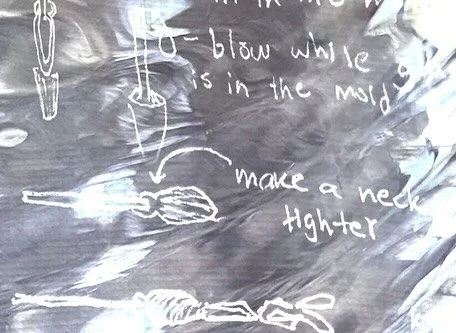 blow while
is in the mold
make a neck
tighter